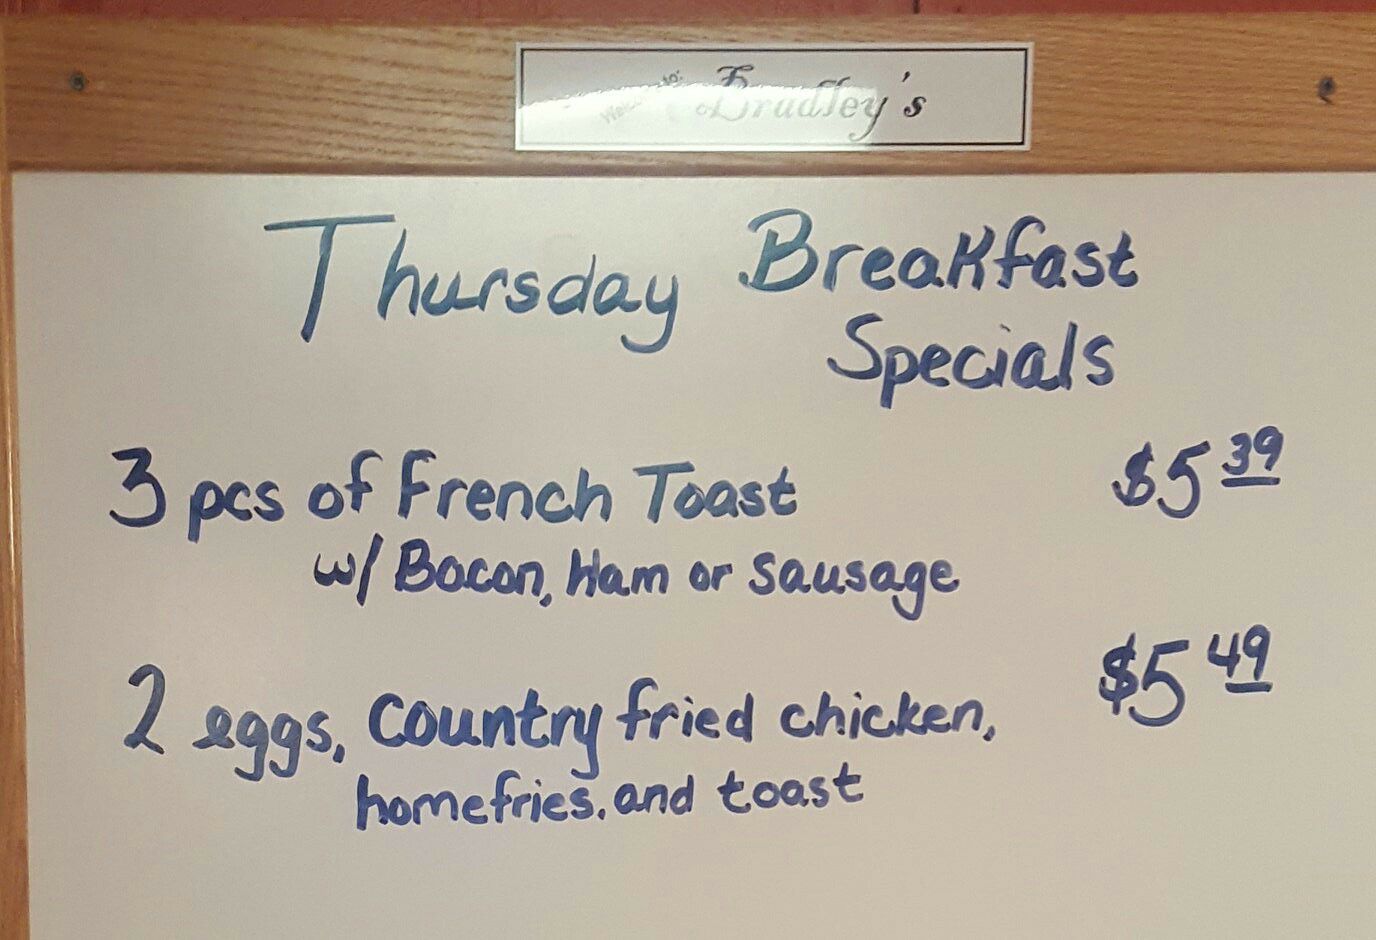 Bradley's
Thursday Breakfast
Specials
3 pcs of French Toast $5 39
w/ Bacon, Ham or Sausage
2 eggs, Country fried chicken, $5 49
homefries, and toast